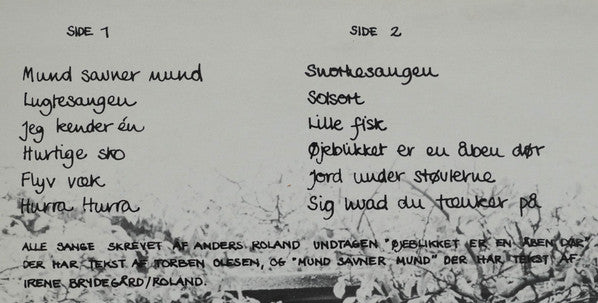 SIDE 1
Mund savner mund
Lugtesangen
Jeg kender én
Hurtige sko
Flyv væk
Hurra Hurra
SIDE 2
Snorkesangen
Solsort
Lille fisk
Øjeblikket er en åben dør
Jord under støvlerne
Sig hvad du tænker på
ALLE SANGE SKREVET AF ANDERS ROLAND UNDTAGEN "ØJEBLIKKET ER EN ÅBEN DØR"
DER HAR TEKST AF TORBEN OLESEN, OG "MUND SAVNER MUND" DER HAR TEKST AF
IRENE BRYDEGÅRD/ROLAND.